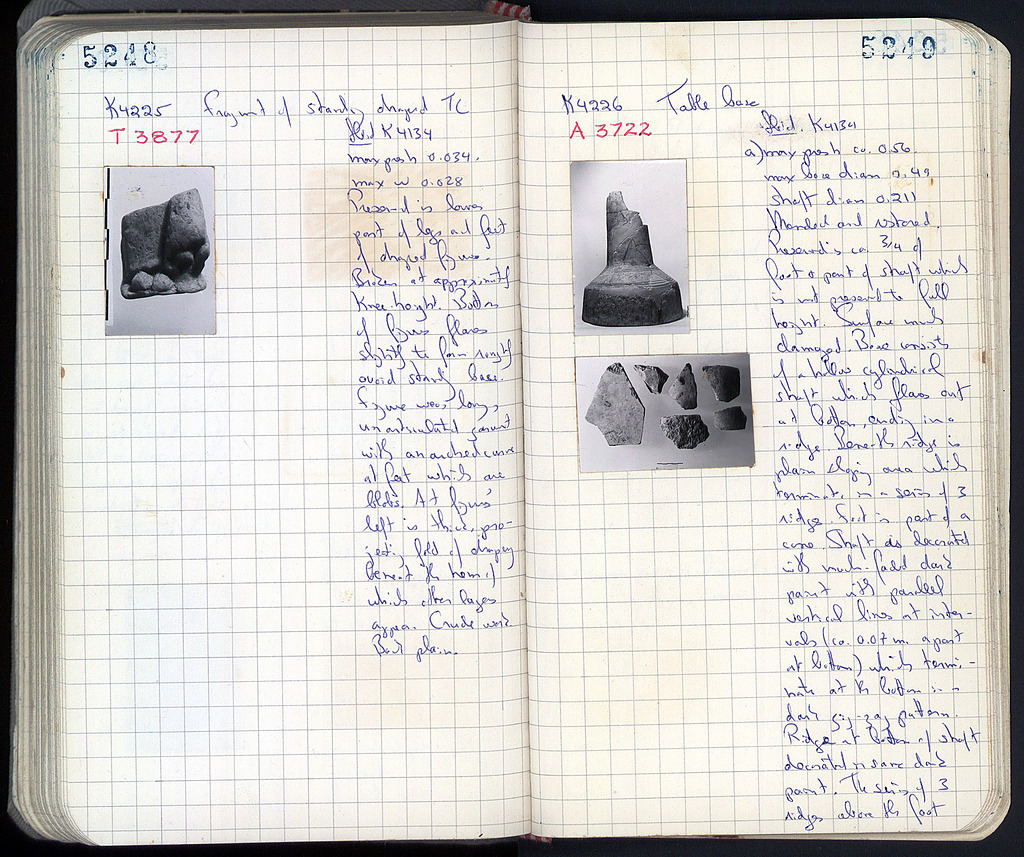 5248
K4225 fragment of standing draped TC
T 3877
Ibid K4134
max presh 0.034.
max w 0.028
Preserved is lower
part of legs and feet
of draped figure.
Broken at approximately
knee height. Bottom
of figure flares
slightly to form roughly
ovoid standing base.
Figure wears long,
unarticulated garment
with an arched curve
at feet which are
blobs. At figure's
left is thick, pro-
jecting fold of drapery
beneath the hem of
which other layers
appear. Crude work.
Back plain.
5249
K4226 Table base
A 3722
Ibid. K4134
a) max presh ca. 0.56.
max base diam 0.49
shaft diam 0.211
Mended and restored.
Preserved is ca 3/4 of
foot & part of shaft which
is not preserved to full
height. Surface much
damaged. Base consists
of a hollow cylindrical
shaft which flares out
at bottom, ending in a
ridge. Beneath ridge is
plain sloping area which
terminates in a series of 3
ridges. Foot is part of a
cone. Shaft is decorated
with much-faded dark
paint with parallel
vertical lines at inter-
vals (ca. 0.07 m. apart
at bottom) which termi-
nate at the bottom in a
dark zig-zag pattern.
Ridge at bottom of shaft
decorated in same dark
paint. The series of 3
ridges above the foot